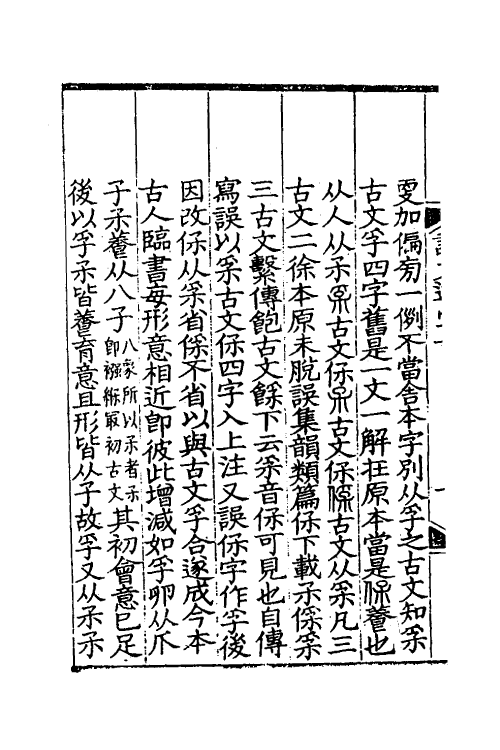 更加偏旁一例不當舍本字別从孚之古文知𤓽
古文孚四字舊是一文一解在原本當是保養也
从人从𤓽𤓽古文保𠈃古文保𠊻古文从𤓽凡三
古文二徐本原未脫誤集韻類篇保下載𤓽𠊻𤓽
三古文繫傳飽古文餘下云𤓽音保可見也自傳
寫誤以𤓽古文保四字入上注又誤保字作孚後
因改保从𤓽省𠊻不省以與古文孚合遂成今本
古人臨書每形意相近即彼此增減如孚卵从爪
子𤓽養从八子八象所以𤓽者示即襁緥最初古文其初會意已足
後以孚𤓽皆養育意且形皆从子故孚又从𤓽𤓽